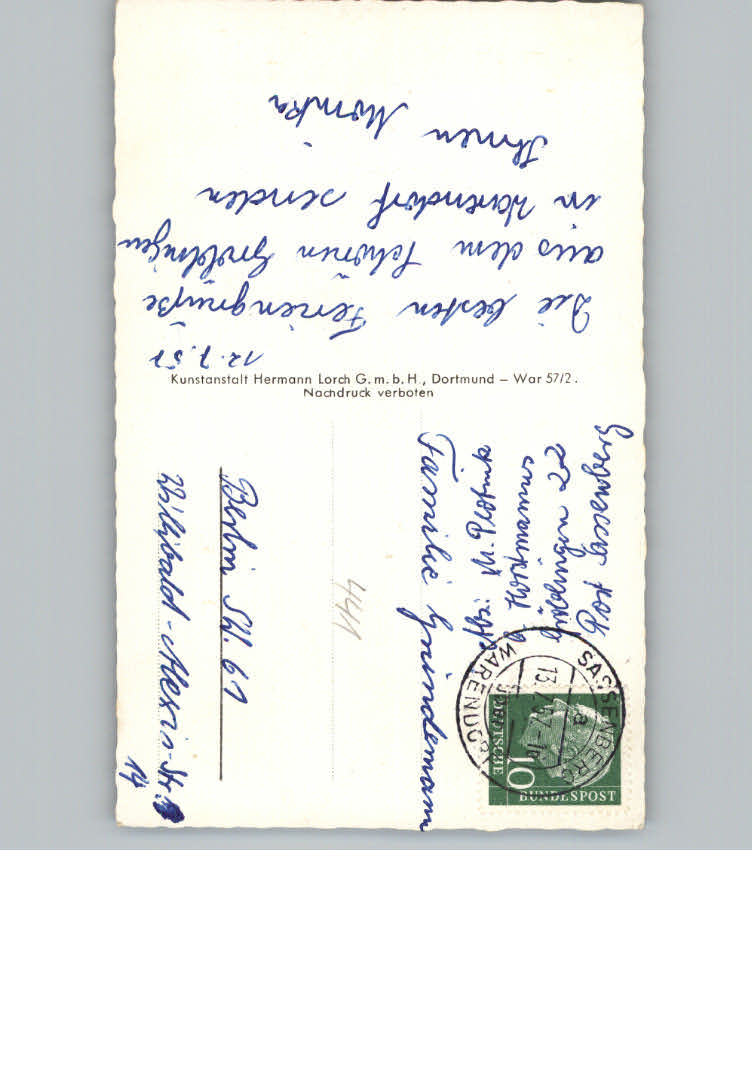 12.7.57
Die besten Feriengrüße
aus dem schönen Gröblingen
in Warendorf senden
Ihnen Monika
Kunstanstalt Hermann Lorch G.m.b.H., Dortmund – War 57/2.
Nachdruck verboten
Abs: M.
Horstmann
Gröblingen 22
Post Sassenberg
Familie Grindemann
Berlin SW. 61
Willibald-Alexis-Str.
14
441
SASSENBERG
13.7.57
a
WARENDORF
DEUTSCHE
BUNDESPOST
10